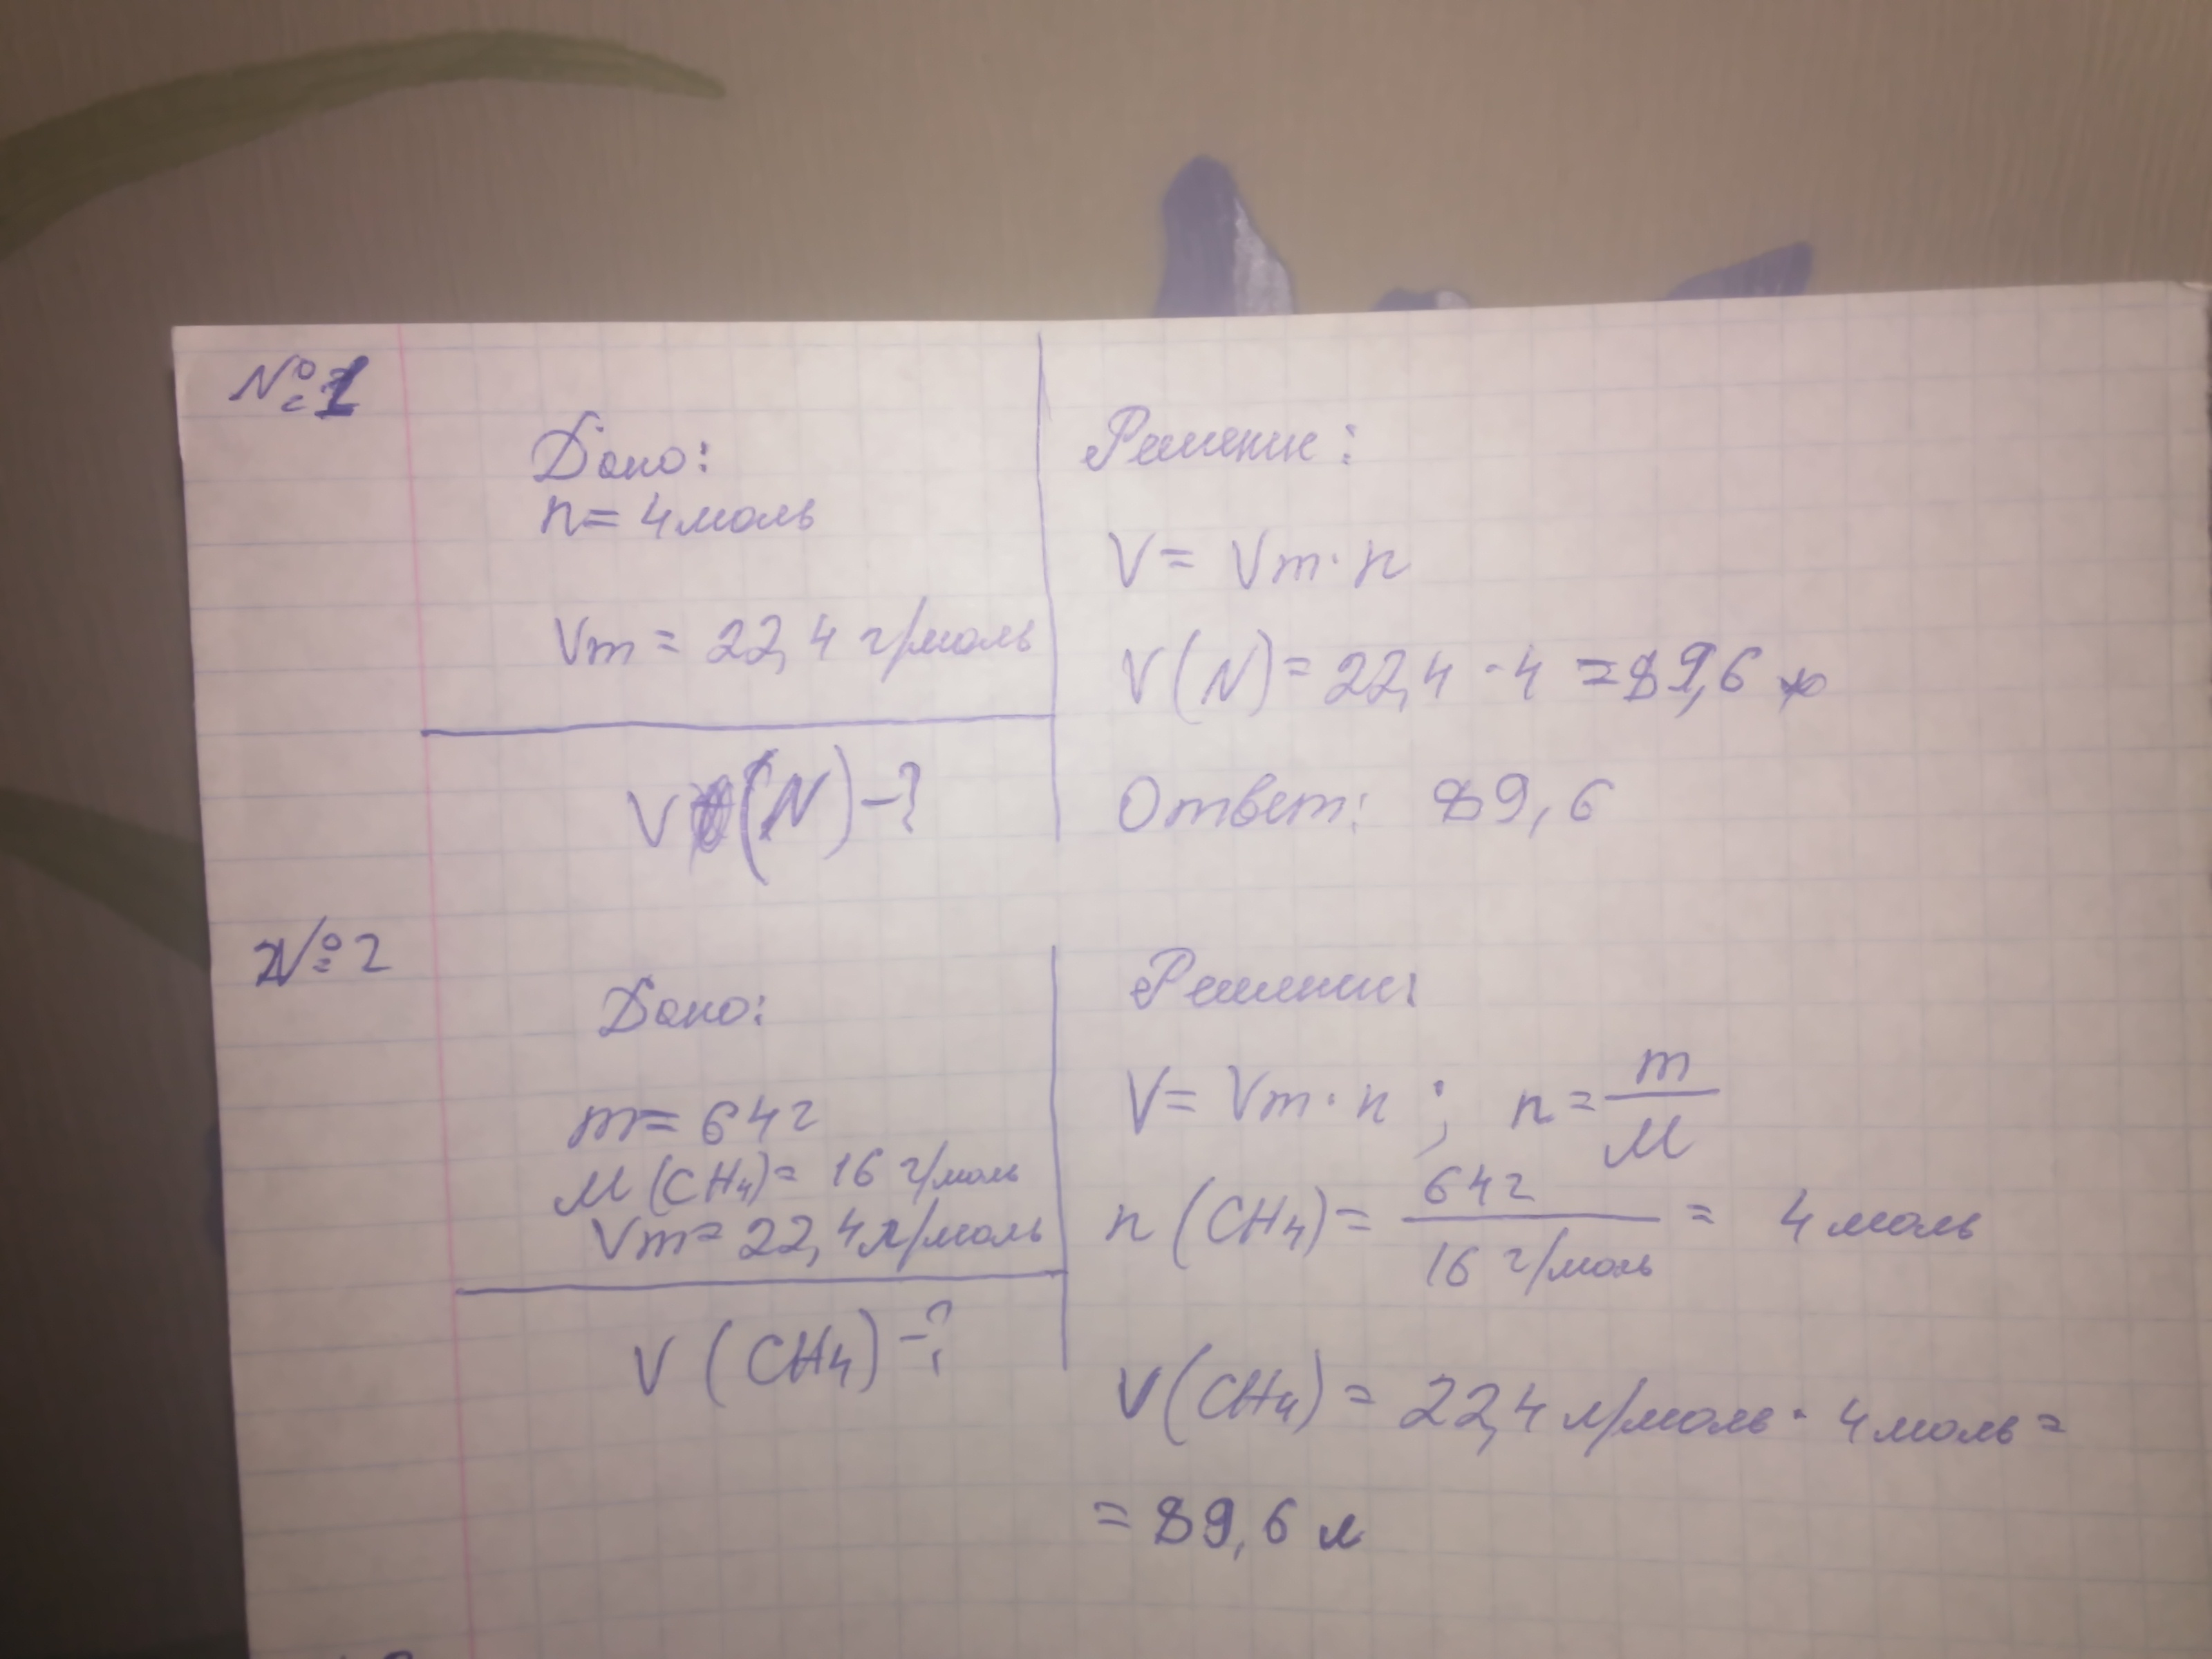 №1
Дано:
n = 4 моль
Vm = 22,4 г/моль
V (N) - ?
Решение:
V = Vm · n
V(N) = 22,4 · 4 = 89,6
Ответ: 89,6
№2
Дано:
m = 64 г
M (CH4) = 16 г/моль
Vm = 22,4 л/моль
V (CH4) - ?
Решение:
V = Vm · n ; n = m/M
n (CH4) = 64 г / 16 г/моль = 4 моль
V (CH4) = 22,4 л/моль · 4 моль =
= 89,6 л